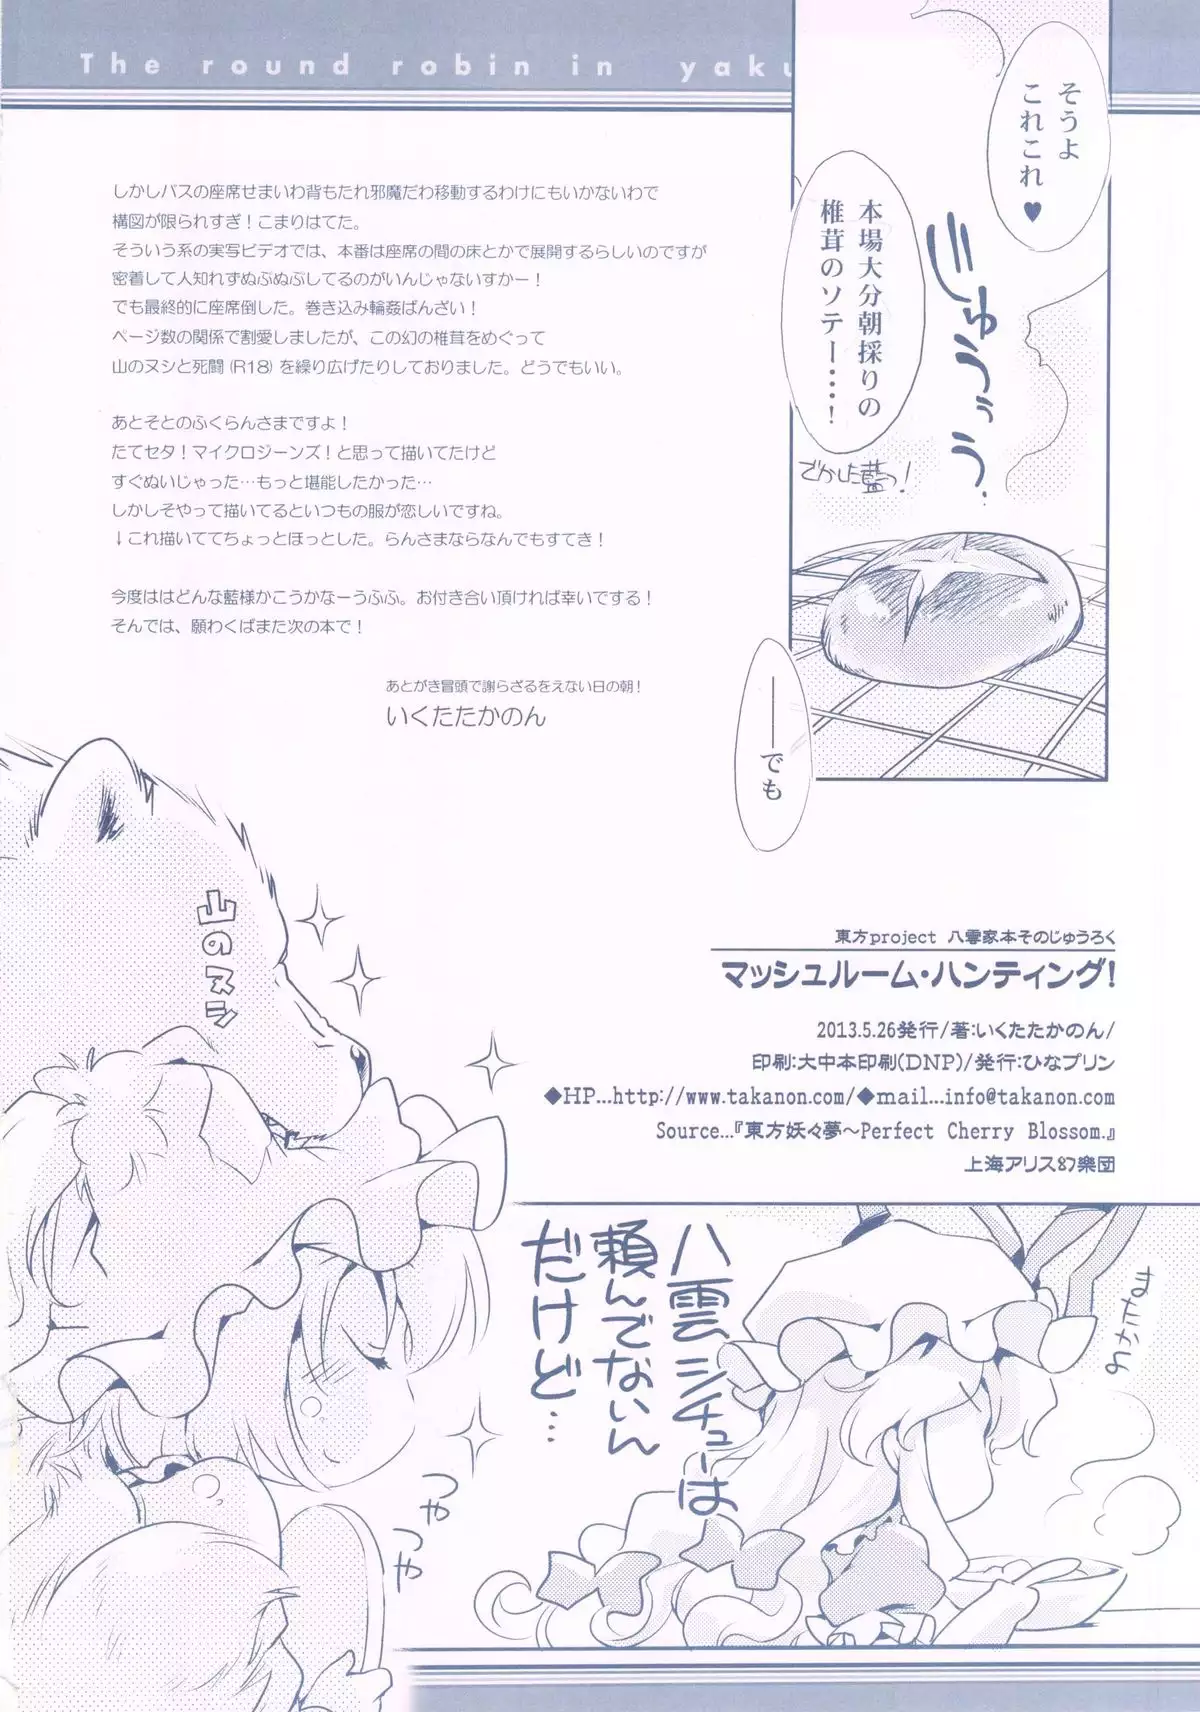 The round robin in yaku
そうよ
これこれ♥
本場大分朝採りの
椎茸のソテー‥‥!
でかした藍っ!
――でも
しかしバスの座席せまいわ背もたれ邪魔だわ移動するわけにもいかないわで
構図が限られすぎ!こまりはてた。
そういう系の実写ビデオでは、本番は座席の間の床とかで展開するらしいのですが
密着して人知れずぬぷぬぷしてるのがいんじゃないすかー!
でも最終的に座席倒した。巻き込み輪姦ばんざい!
ページ数の関係で割愛しましたが、この幻の椎茸をめぐって
山のヌシと死闘(R18)を繰り広げたりしておりました。どうでもいい。
あとそとのふくらんさまですよ!
たてセタ!マイクロジーンズ!と思って描いてたけど
すぐぬいじゃった…もっと堪能したかった…
しかしそやって描いてるといつもの服が恋しいですね。
↓これ描いててちょっとほっとした。らんさまならなんでもすてき!
今度ははどんな藍様かこうかなーうふふ。お付き合い頂ければ幸いでする!
そんでは、願わくばまた次の本で!
あとがき冒頭で謝らざるをえない日の朝!
いくたたかのん
山のヌシ
東方project 八雲家本そのじゅうろく
マッシュルーム・ハンティング!
2013.5.26発行/著:いくたたかのん/
印刷:大中本印刷(DNP)/発行:ひなプリン
◆HP...http://www.takanon.com/◆mail...info@takanon.com
Source...『東方妖々夢~Perfect Cherry Blossom.』
上海アリス幻樂団
八雲シチューは
頼んでないん
だけど…
つやつや